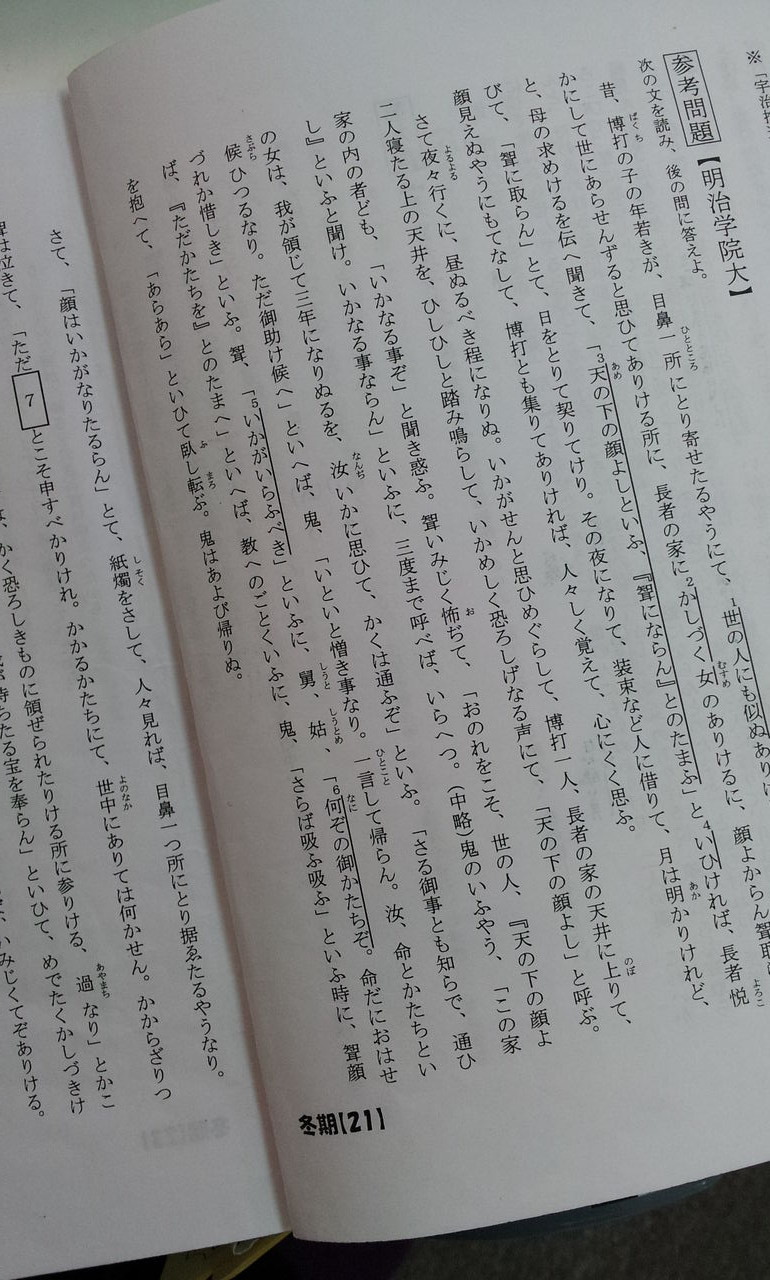 ※「宇治拾
参考問題【明治学院大】
次の文を読み、後の問に答えよ。
昔、博打の子の年若きが、目鼻一所にとり寄せたるやうにて、1世の人にも似ぬあり
かにして世にあらせんずると思ひてありける所に、長者の家に2かしづく女のありけるに、顔よからん聟取
と、母の求めけるを伝へ聞きて、「3天の下の顔よしといふ、『聟にならん』とのたまふ」と4いひければ、長者悦
びて、「聟に取らん」とて、日をとりて契りてけり。その夜になりて、装束など人に借りて、月は明かりけれど、
顔見えぬやうにもてなして、博打とも集りてありければ、人々しく覚えて、心にくく思ふ。
さて夜々行くに、昼ぬるべき程になりぬ。いかがせんと思ひめぐらして、博打一人、長者の家の天井に上りて、
二人寝たる上の天井を、ひしひしと踏み鳴らして、いかめしく恐ろしげなる声にて、「天の下の顔よし」と呼ぶ。
家の内の者ども、「いかなる事ぞ」と聞き惑ふ。聟いみじく怖ぢて、「おのれをこそ、世の人、『天の下の顔よ
し』といふと聞け。いかなる事ならん」といふに、三度まで呼べば、いらへつ。(中略)鬼のいふやう、「この家
の女は、我が領じて三年になりぬるを、汝いかに思ひて、かくは通ふぞ」といふ。「さる御事とも知らで、通ひ
候ひつるなり。ただ御助け候へ」といへば、鬼、「いといと憎き事なり。一言して帰らん。汝、命とかたちとい
づれか惜しき」といふ。聟、「5いかがいらふべき」といふに、舅、姑、「6何ぞの御かたちぞ。命だにおはせ
ば、『ただかたちを』とのたまへ」といへば、教へのごとくいふに、鬼、「さらば吸ふ吸ふ」といふ時に、聟顔
を抱へて、「あらあら」といひて臥し転ぶ。鬼はあよび帰りぬ。
冬期【21】
さて、「顔はいかがなりたるらん」とて、紙燭をさして、人々見れば、目鼻一つ所にとり据ゑたるやうなり。
聟は泣きて、「ただ7とこそ申すべかりけれ。かかるかたちにて、世中にありては何かせん。かからざりつ
かく恐ろしきものに領ぜられたりける所に参りける、過なり」とかこ
持ちたる宝を奉らん」といひて、めでたくかしづきけ
いみじくてぞありける。